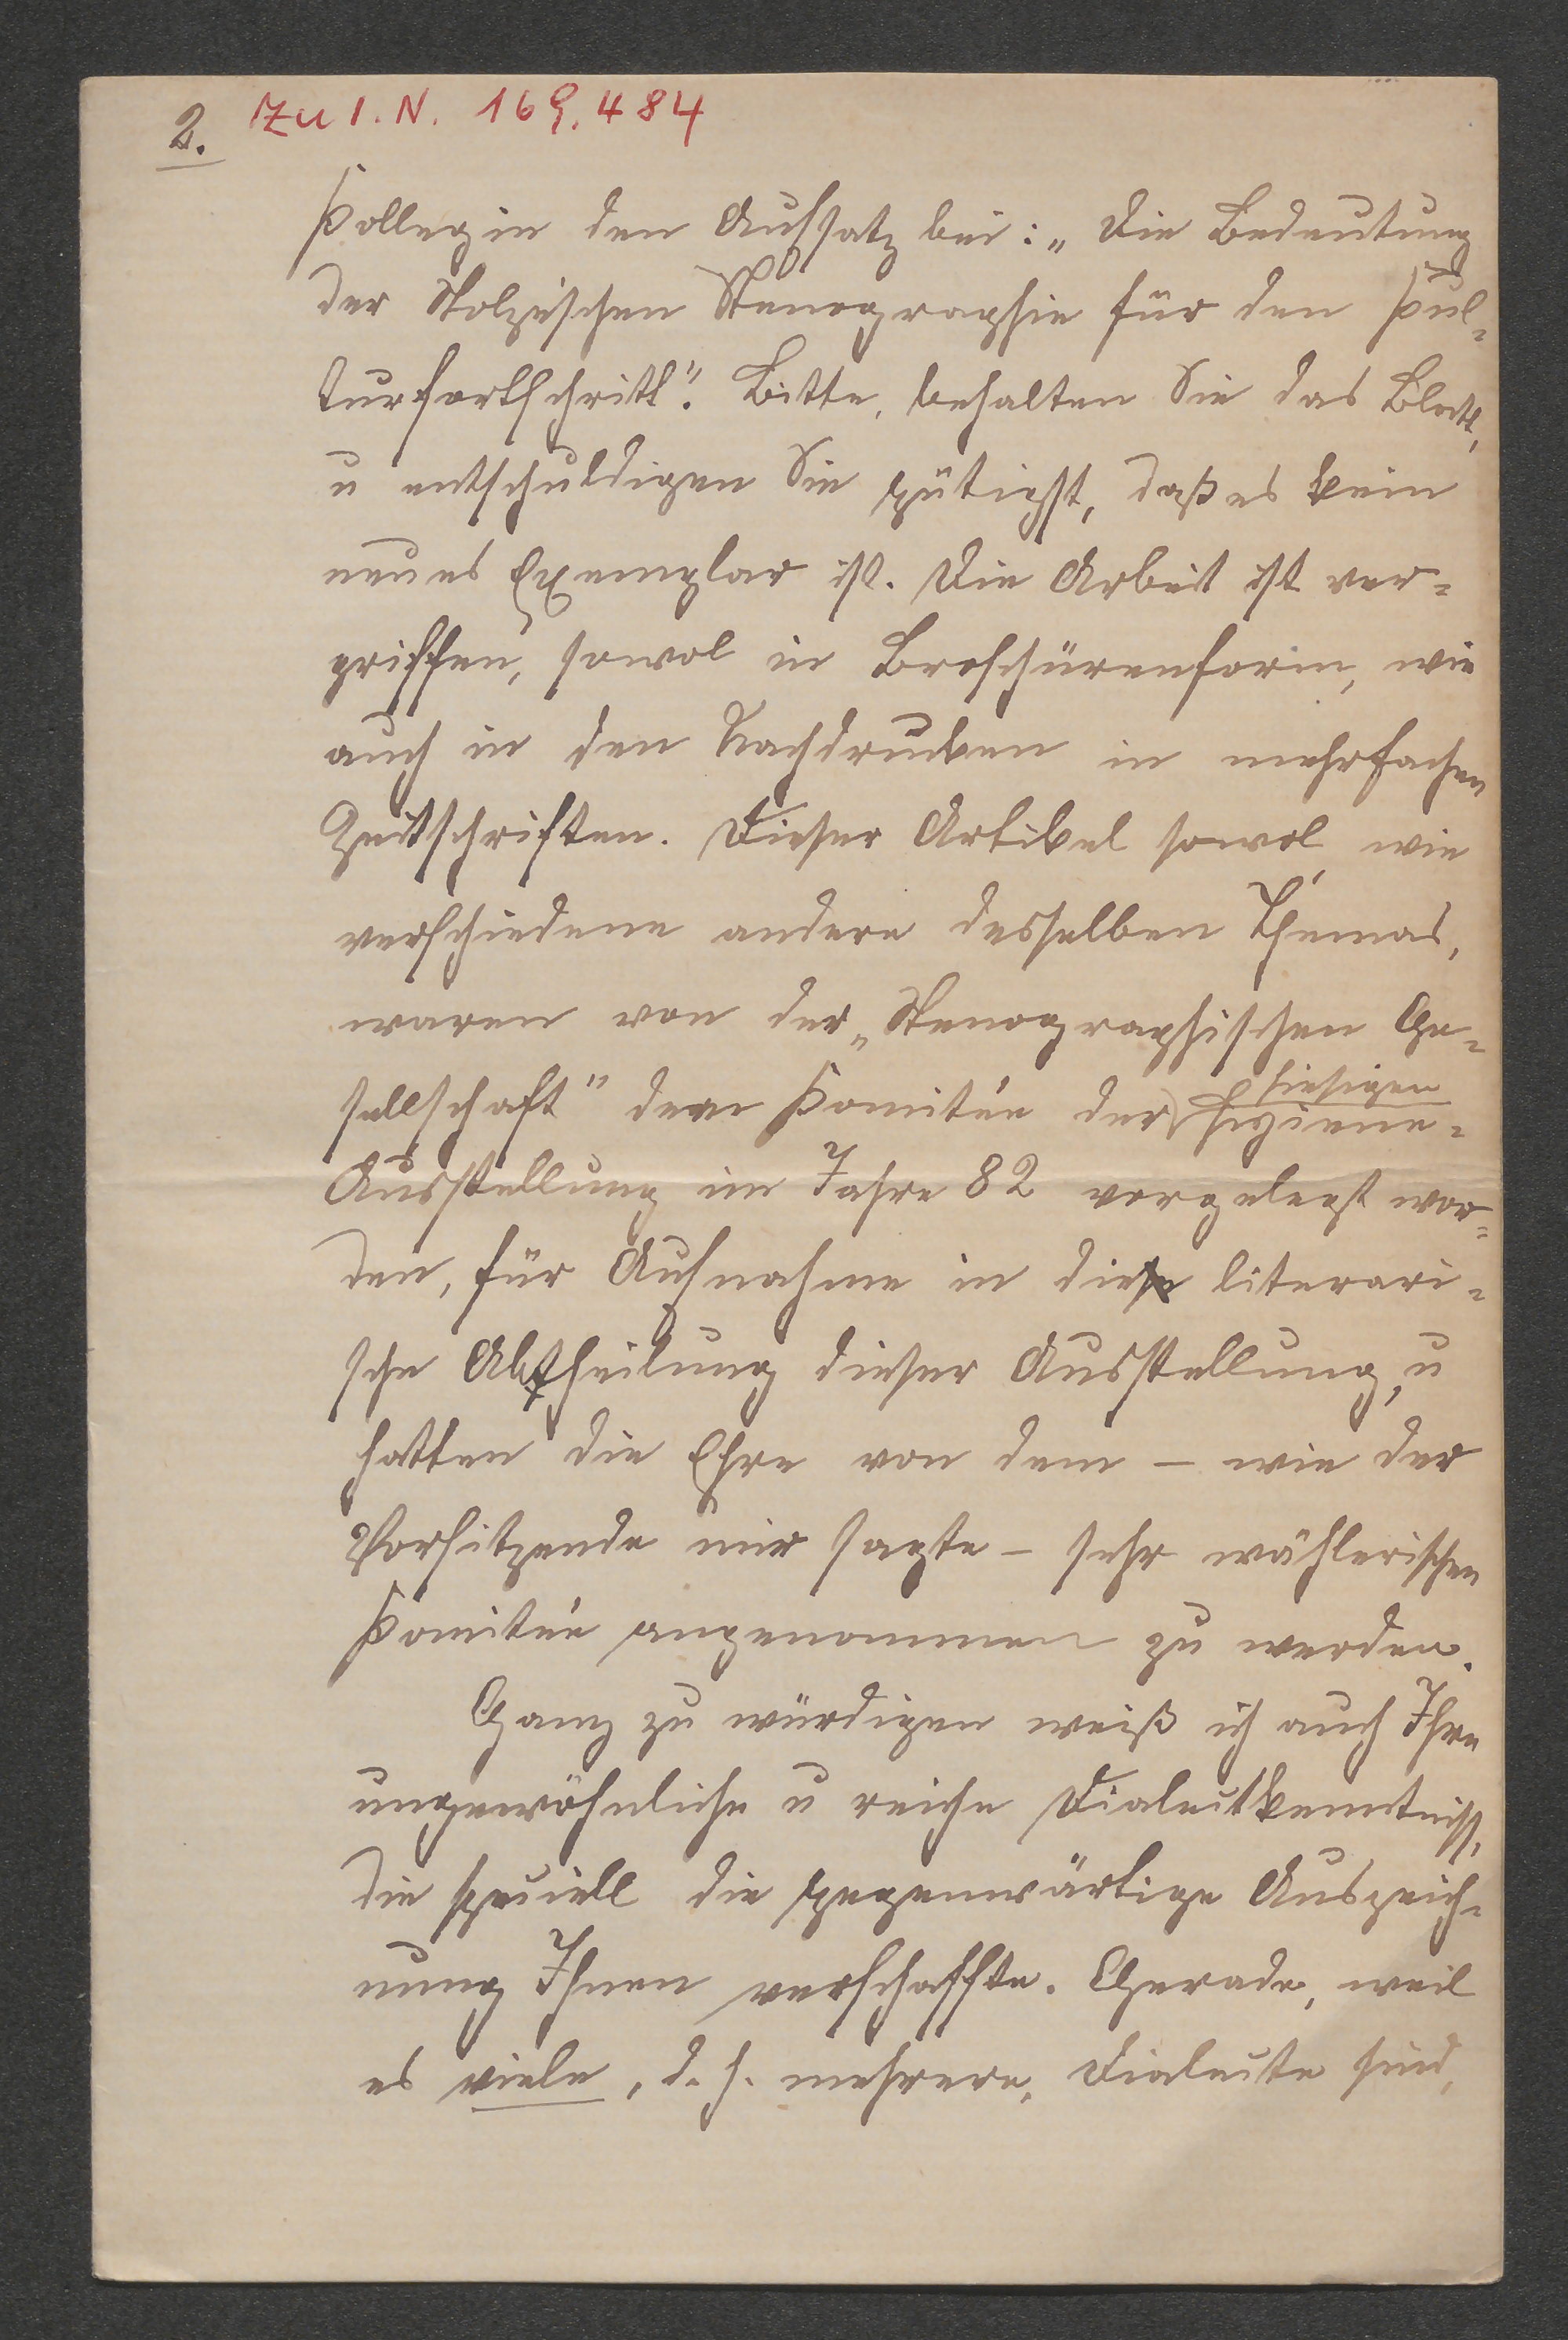 2. Zu I. N. 169.484
Kollegin den Aufsatz bei: „Die Bedeutung
der Stolzeschen Stenographie für den Kul-
turfortschritt“. Bitte, behalten Sie das Blatt,
u entschuldigen Sie gütigst, daß es kein
neues Exemplar ist. Die Arbeit ist ver-
griffen, sowol in Broschürenform, wie
auch in den Nachdrucken in mehrfachen
Zeitschriften. Dieser Artikel sowol, wie
verschiedene andere desselben Themas,
waren von der „Stenographischen Ge-
sellschaft“ dem Komitée der hiesigen Higiene-
Ausstellung im Jahre 82 vorgelegt wor-
den, für Aufnahme in die literari-
sche Abtheilung dieser Ausstellung, u
hatten die Ehre von dem – wie der
Vorsitzende mir sagte – sehr wählerischen
Komitée angenommen zu werden.
Ganz zu würdigen weiß ich auch Ihre
ungewöhnliche u reiche Dialectkenntniss,
die speciell die gegenwärtige Auszeich-
nung Ihnen verschaffte. Gerade, weil
es viele, d. h. mehrere, Dialecte sind,